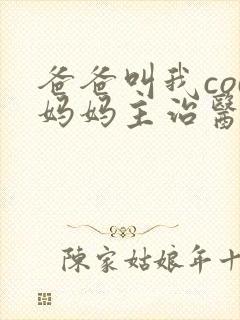 爸爸叫我co
妈妈主治醫
陳家姑娘年十